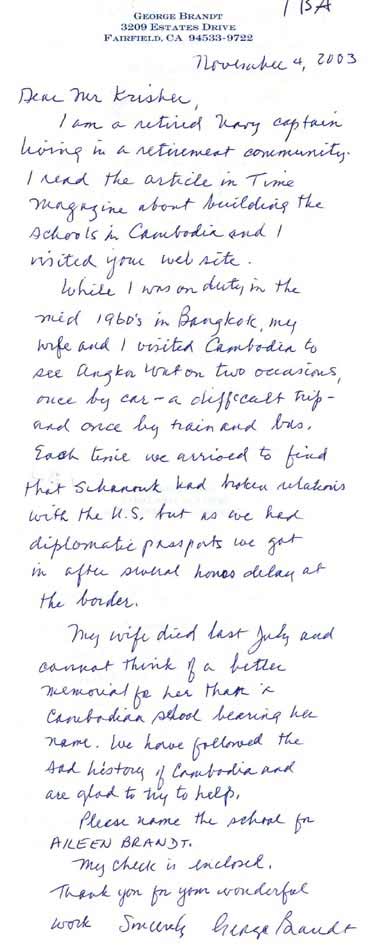 TBA
GEORGE BRANDT
3209 ESTATES DRIVE
FAIRFIELD, CA 94533-9722
November 4, 2003
Dear Mr Krisher,
I am a retired Navy captain
living in a retirement community.
I read the article in Time
Magazine about building the
schools in Cambodia and I
visited your web site.
While I was on duty in the
mid 1960's in Bangkok, my
wife and I visited Cambodia to
see Angkor Wat on two occasions,
once by car - a difficult trip -
and once by train and bus.
Each time we arrived to find
that Sihanouk had broken relations
with the U.S. but as we had
diplomatic passports we got
in after several hours delay at
the border.
My wife died last July and
cannot think of a better
memorial for her than a
Cambodian school bearing her
name. We have followed the
sad history of Cambodia and
are glad to try to help.
Please name the school for
AILEEN BRANDT.
My check is enclosed.
Thank you for your wonderful
work Sincerely George Brandt